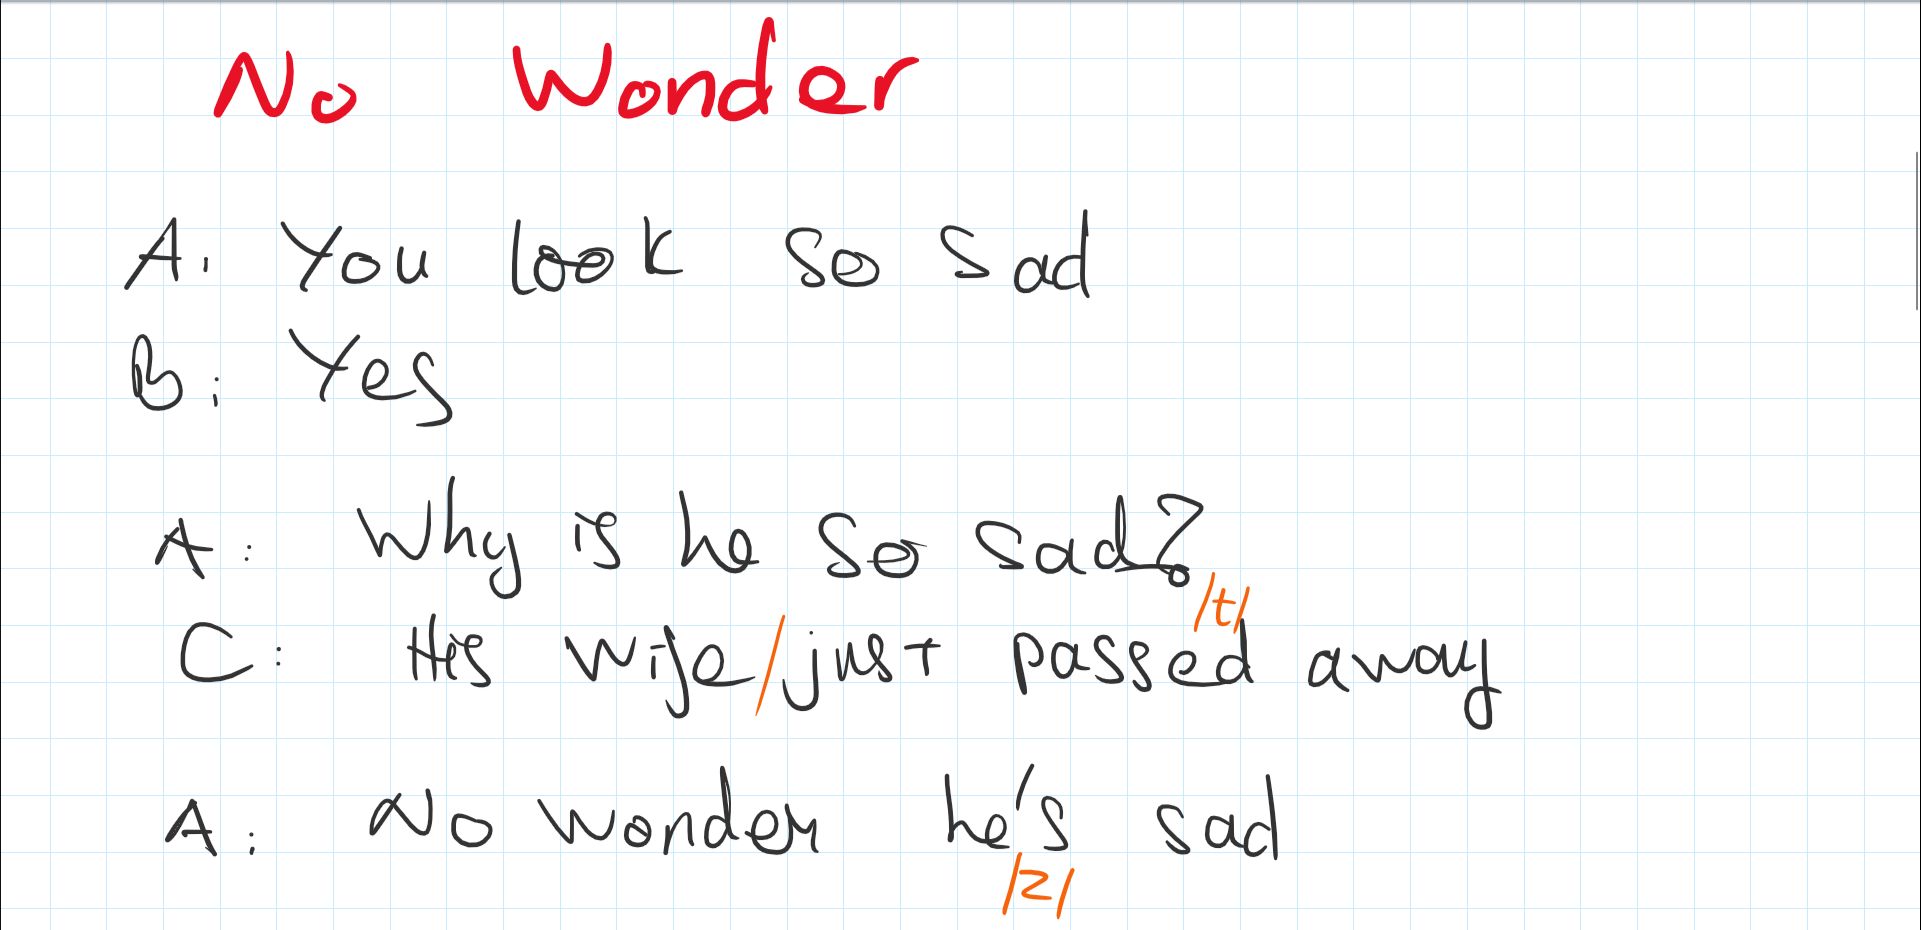 No Wonder
A: You look so sad
B: Yes
A: Why is he so sad?
/t/
C: His wife/just passed away
A: No wonder he's sad
/z/